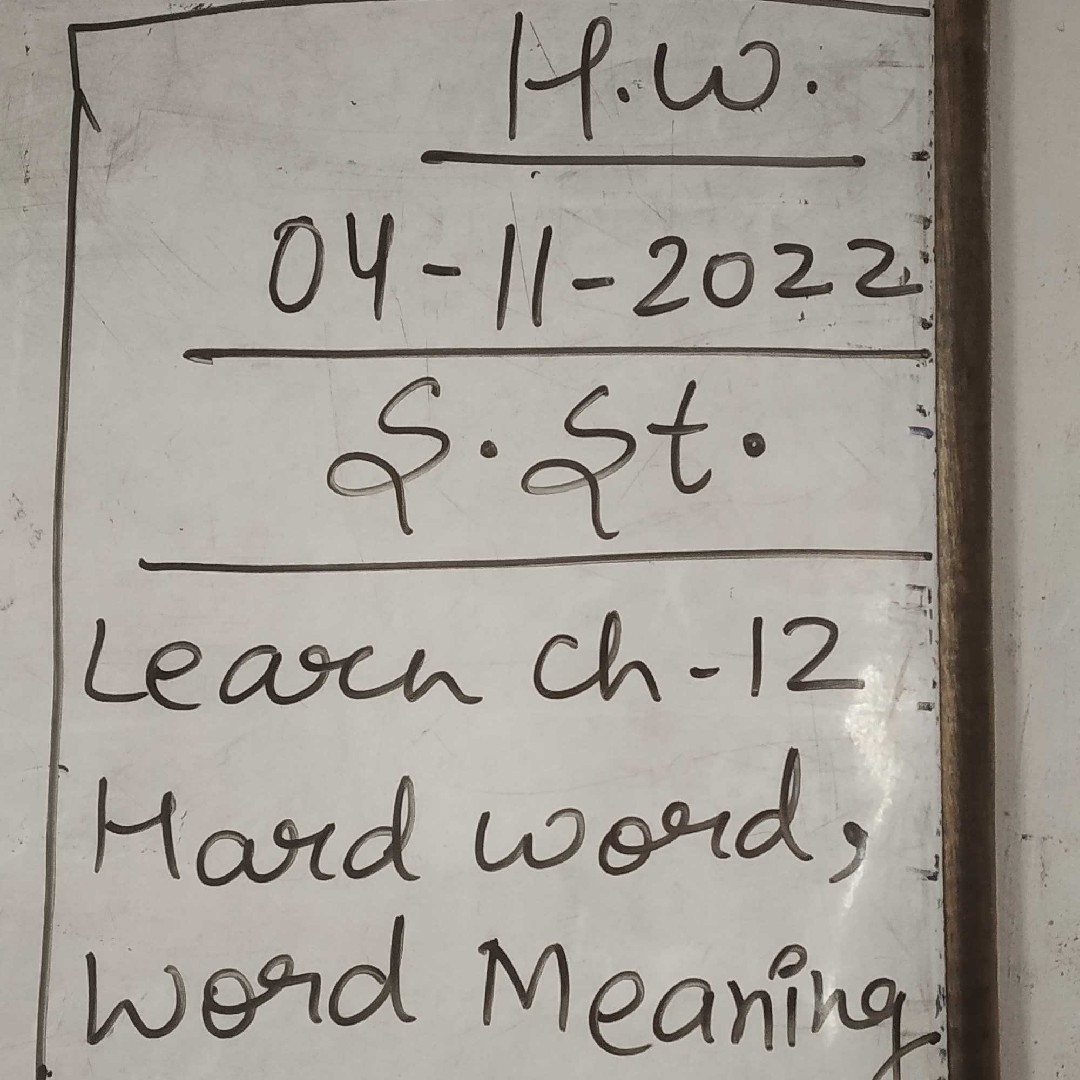 H.W.
04-11-2022
S.St.
Learn Ch-12
Hard word,
Word Meaning